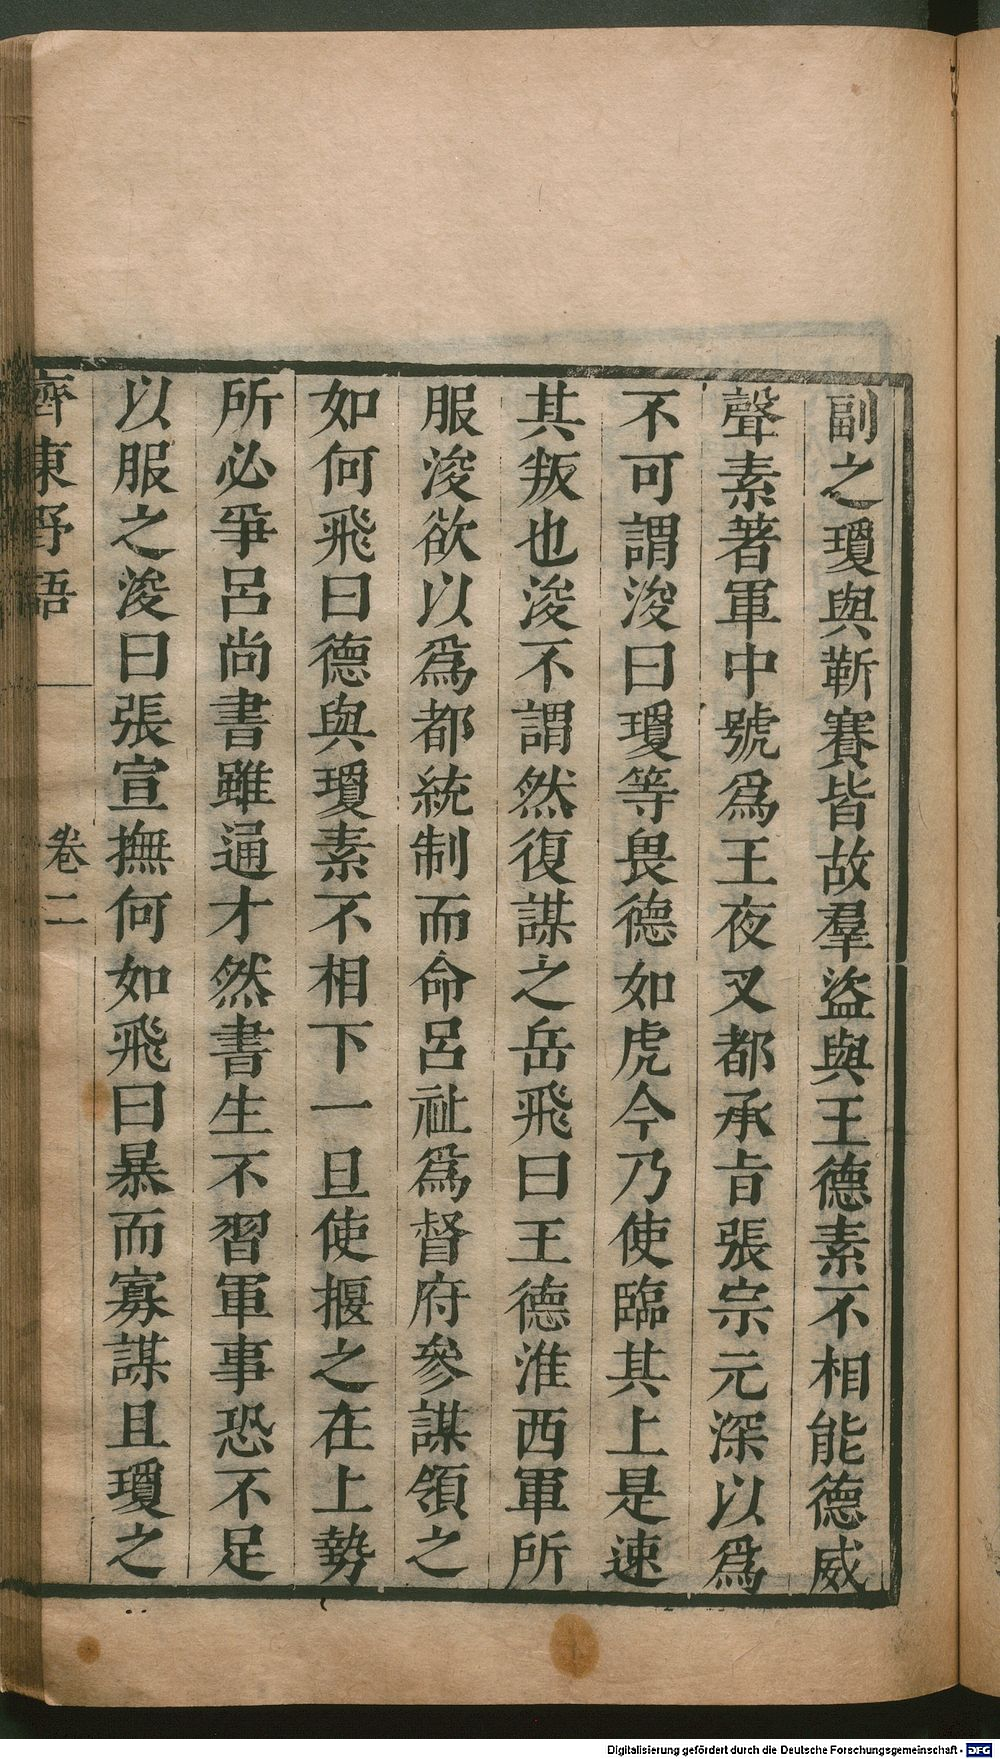 副之瓊與靳賽皆故羣盜與王德素不相能德威
聲素著軍中號爲王夜叉都承㫖張宗元深以爲
不可謂浚曰瓊等畏德如虎今乃使臨其上是速
其叛也浚不謂然復謀之岳飛曰王德淮西軍所
服浚欲以爲都統制而命呂祉爲督府參謀領之
如何飛曰德與瓊素不相下一旦使揠之在上勢
所必爭呂尚書雖通才然書生不習軍事恐不足
以服之浚曰張宣撫何如飛曰暴而寡謀且瓊之
齊東野語
卷二
Digitalisierung gefördert durch die Deutsche Forschungsgemeinschaft - DFG